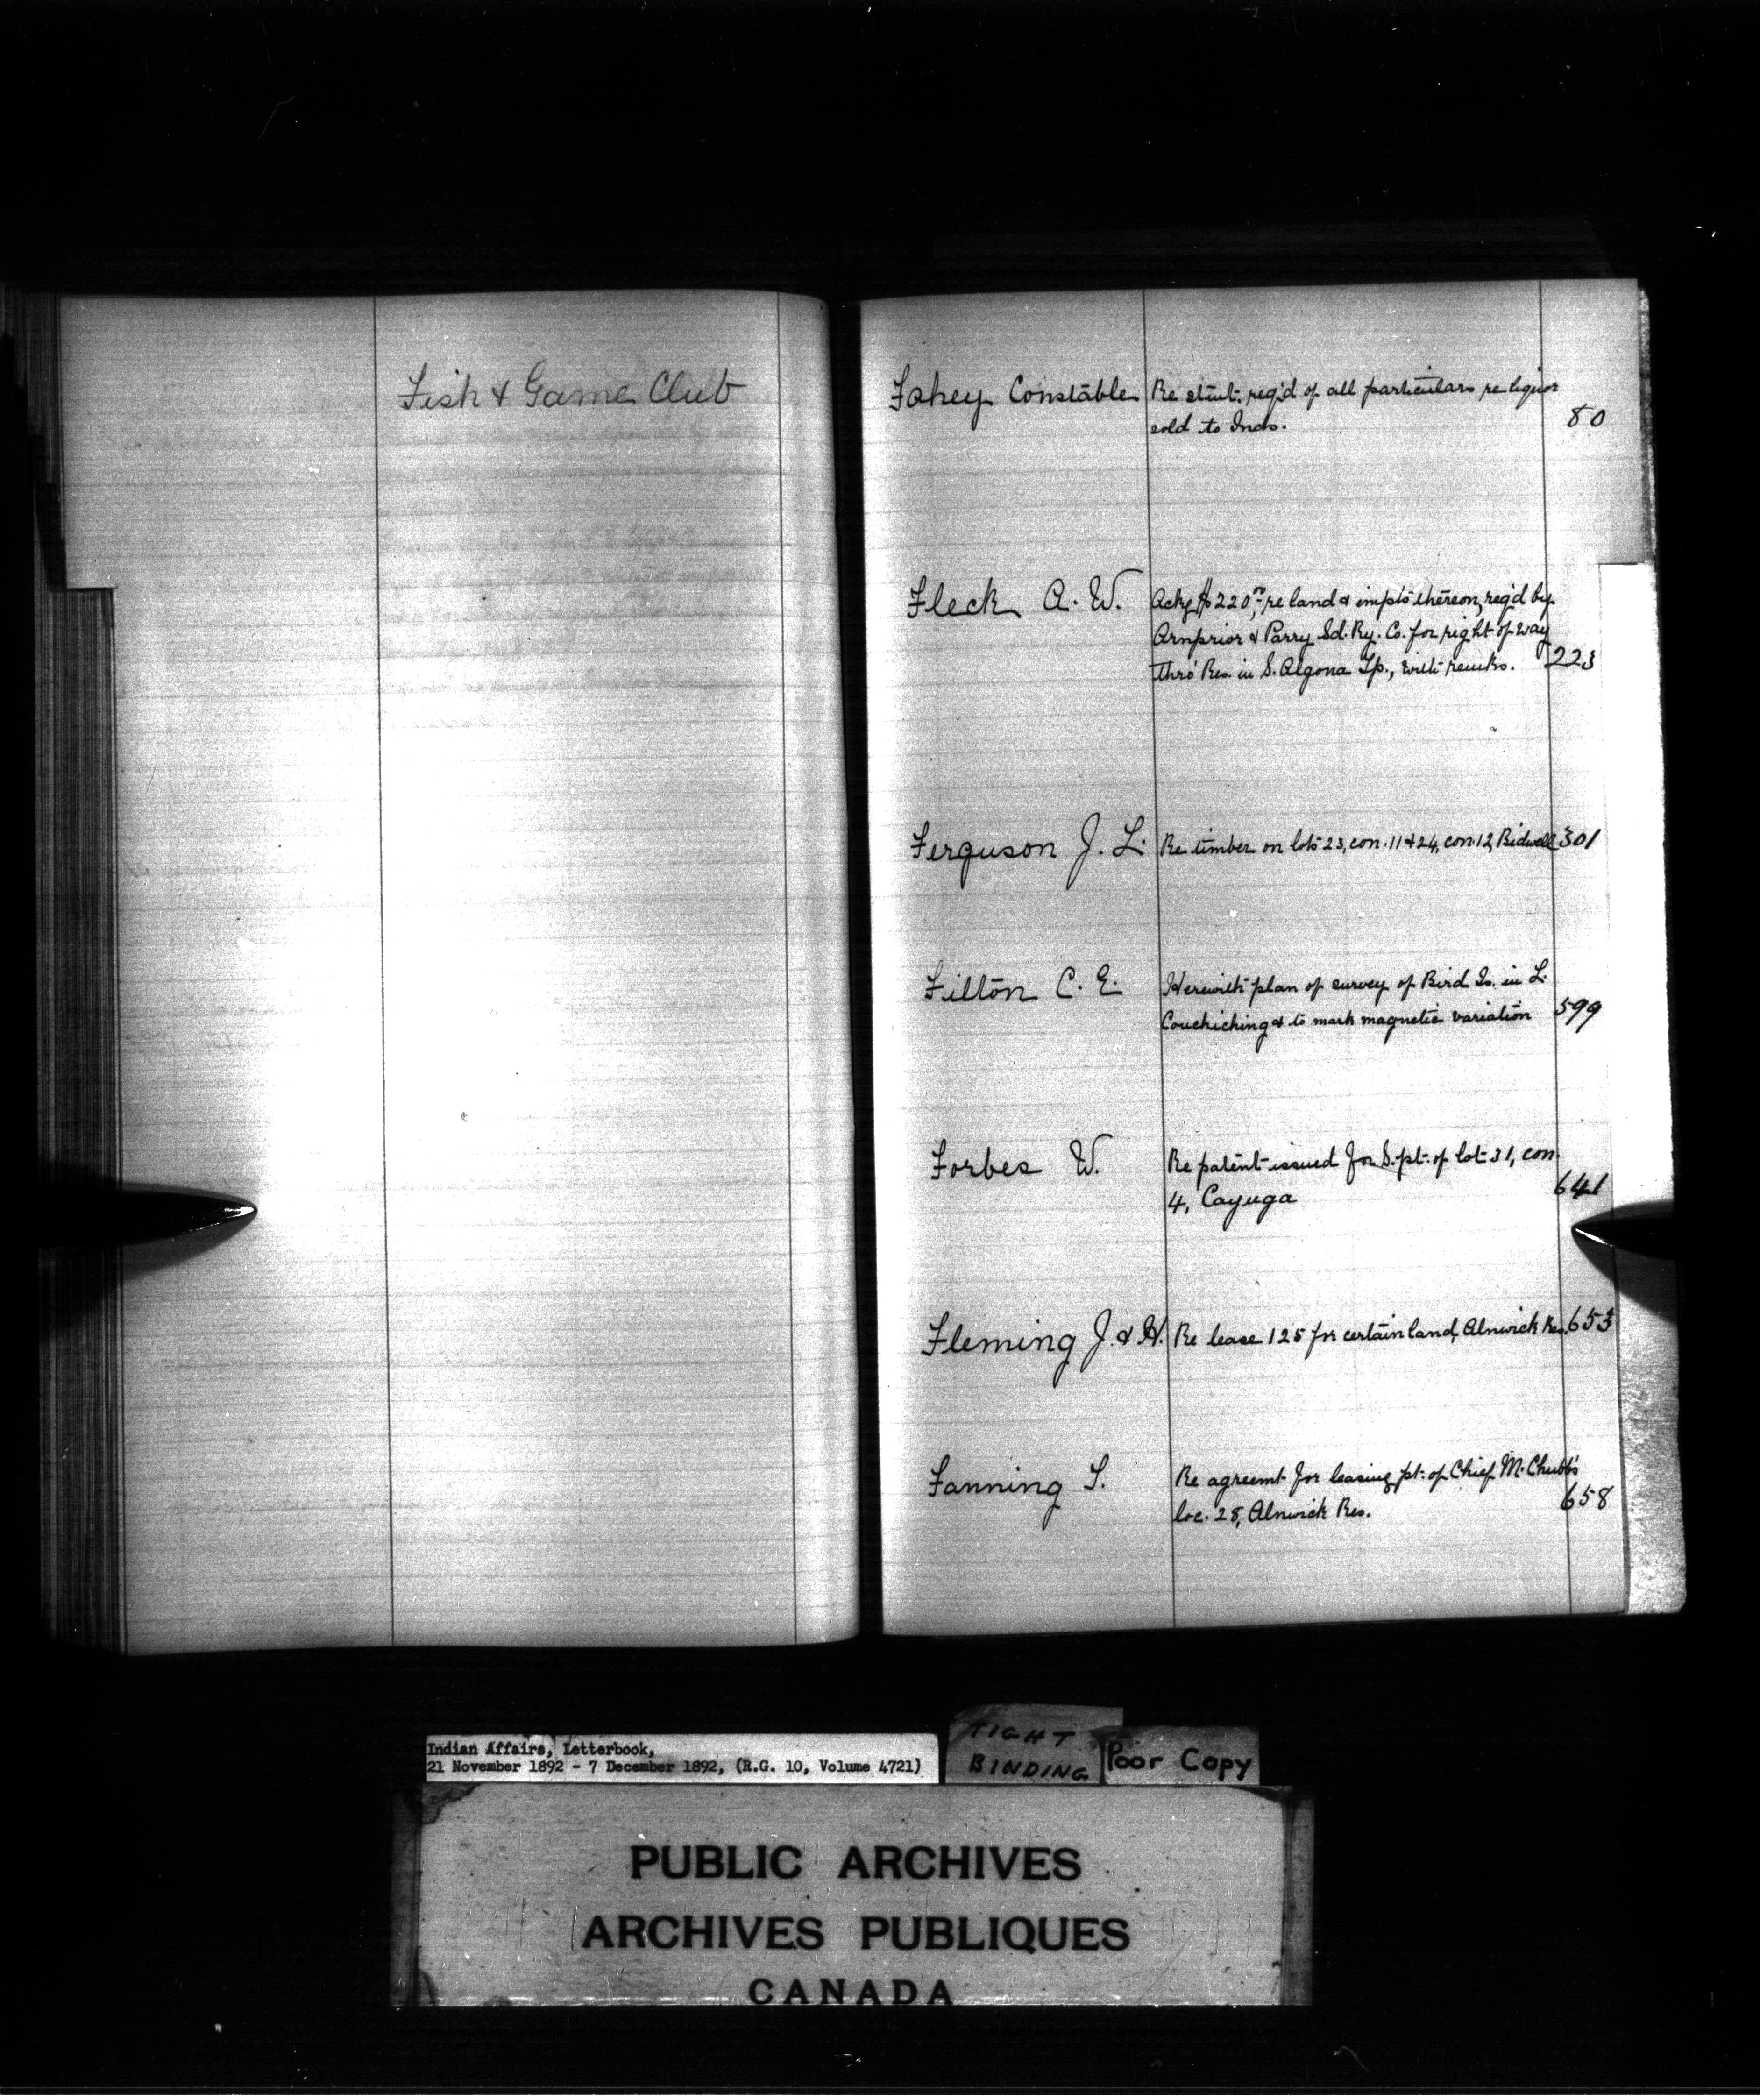 Fish & Game Club
Fahey Constable Re stmt. req'd of all particulars re liquor
sold to Inds. 80
Fleck A. W. Ackg $220, re land & impts thereon, req'd by
Arnprior & Parry Sd. Ry. Co. for right of way
thro' Res. in S. Algona Tp., with remks. 223
Ferguson J. L. Re timber on lots 23, con. 11 & 24, con. 12, Bidwell 301
Fitton C. E. Herewith plan of survey of Bird Is. in L.
Couchiching & to mark magnetic variation 599
Forbes W. Re patent issued for S. pt. of lot 31, con.
4, Cayuga 641
Fleming J. & H. Re lease 125 for certain land, Alnwick Res. 653
Fanning T. Re agreemt for leasing pt. of Chief M. Chubb's
loc. 28, Alnwick Res. 658
Indian Affairs, Letterbook,
21 November 1892 - 7 December 1892, (R.G. 10, Volume 4721)
TIGHT
BINDING
Poor Copy
PUBLIC ARCHIVES
ARCHIVES PUBLIQUES
CANADA